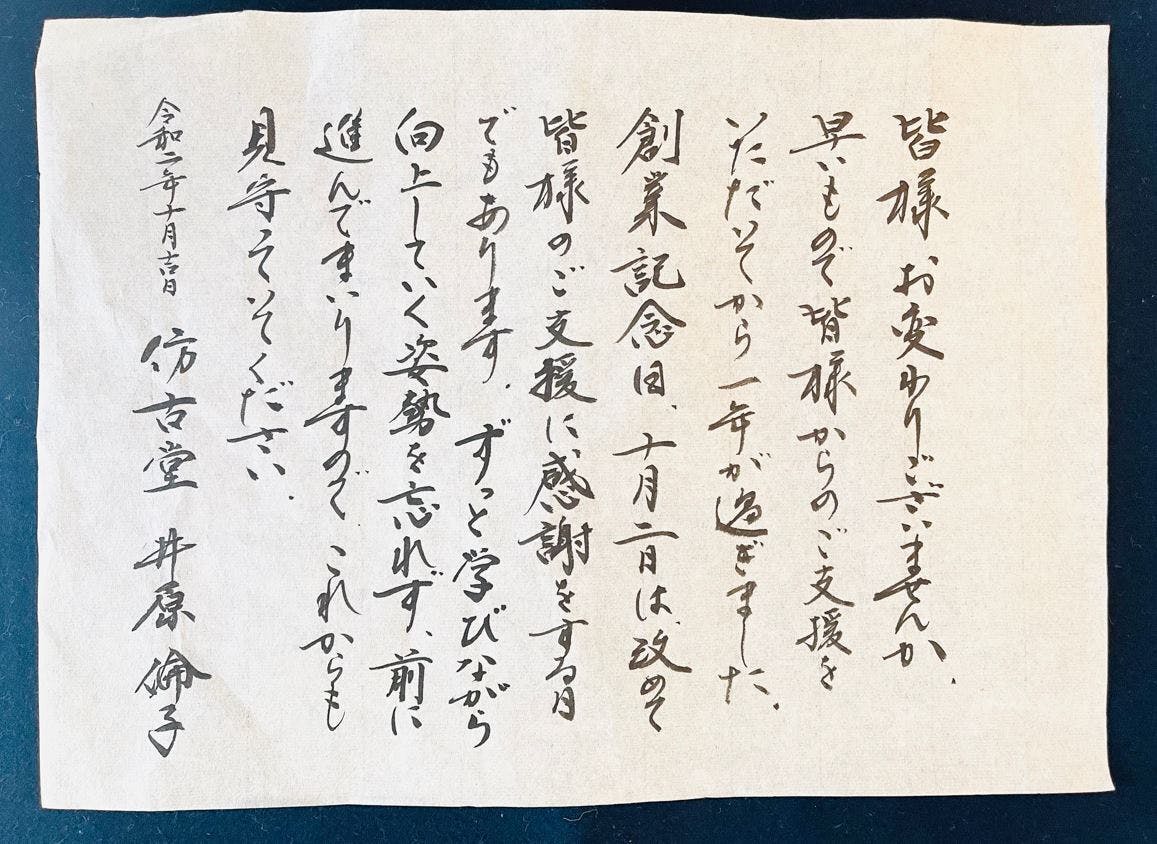 皆様お変わりございませんか.
早いもので皆様からのご支援を
いただいてから一年が過ぎました.
創業記念日、十月二日は、改めて
皆様のご支援に、感謝をする日
でもあります. ずっと学びながら
向上していく姿勢を忘れず、前に
進んでまいりますので、これからも
見守っていてください.
令和二年十月吉日 仿古堂 井原倫子